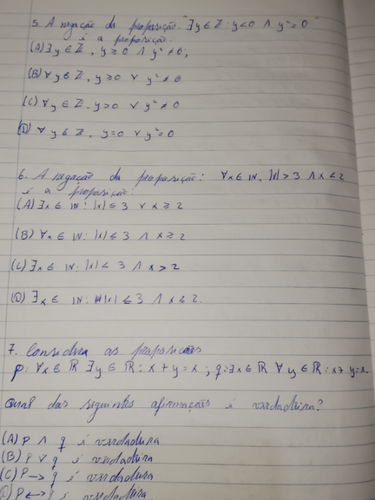 5. A negação da proposição "∃y ∈ ℤ: y<0 ∧ y²=0"
é a proposição
(A) ∃y ∈ ℤ, y≥0 ∧ y²≠0;
(B) ∀y ∈ ℤ, y≥0 ∨ y²≠0
(C) ∀y ∈ ℤ, y>0 ∨ y²≠0
(D) ∀y ∈ ℤ, y=0 ∨ y²=0
6. A negação da proposição: ∀x ∈ IN, |x|>3 ∧ x≤2
é a proposição:
(A) ∃x ∈ IN: |x| ≤ 3 ∨ x ≥ 2
(B) ∀x ∈ IN: |x| ≤ 3 ∧ x ≥ 2
(C) ∃x ∈ IN: |x| ≤ 3 ∧ x > 2
(D) ∃x ∈ IN: |x| ≤ 3 ∧ x ≤ 2.
7. Considera as proposições
p: ∀x ∈ ℝ ∃y ∈ ℝ: x + y = x ; q: ∃x ∈ ℝ ∀y ∈ ℝ: x + y = x.
Qual das seguintes afirmações é verdadeira?
(A) P ∧ q é verdadeira
(B) P ∨ q é verdadeira
(C) P → q é verdadeira
(D) P ↔ q é verdadeira